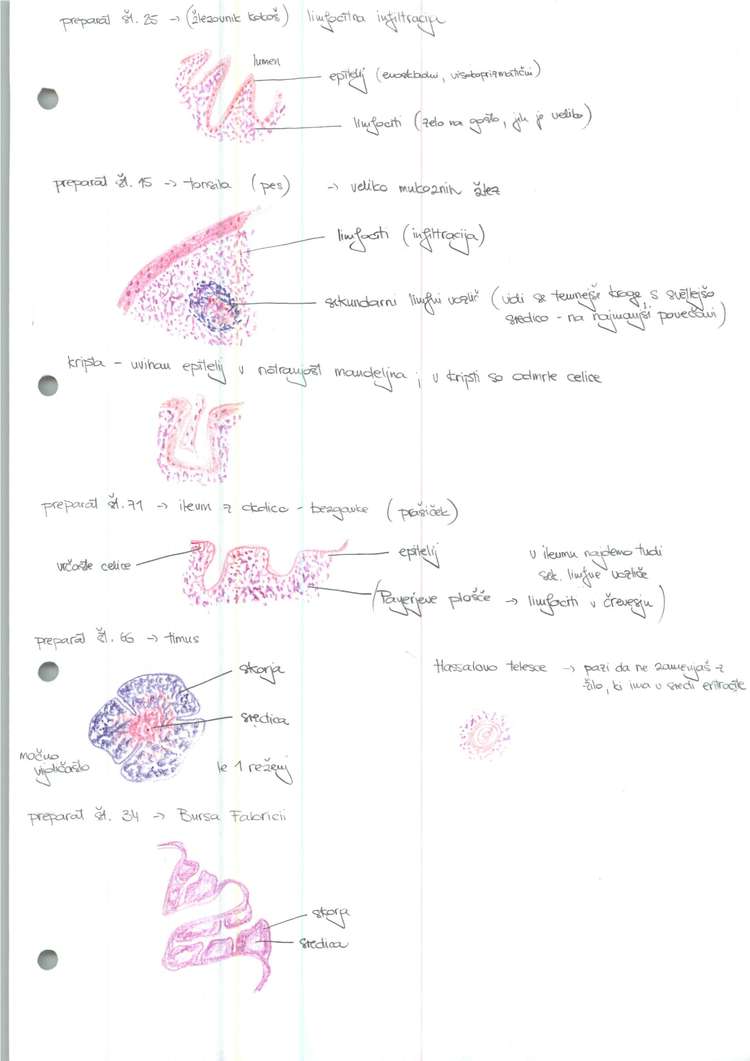 preparat št. 25 → (žlezovnik kokoš) limfocitna infiltracija
lumen
epitelij (enoskladni, visokoprizmatični)
limfociti (zelo na gosto, jih je veliko)
preparat št. 15 → tonsila (pes) → veliko mukoznih žlez
limfociti (infiltracija)
sekundarni limfni vozlič (vidi se temnejše kroge s svetlejšo
sredico - na najmanjši povečavi)
kripta - uvihan epitelij v notranjost mandeljna ; v kripti so odmrle celice
preparat št. 71 → ileum z okolico - bezgavke (prašiček)
vrčaste celice
epitelij
v ileumu najdemo tudi
sek. limfne vozliče
(Payerjeve plošče → limfociti v črevesju)
preparat št. 66 → timus
skorja
Hassalovo telesce → pazi da ne zamenjaš z
žilo, ki ima v sredi eritrocite
sredica
močno
vijoličasto
le 1 reženj
preparat št. 34 → Bursa Fabricii
skorja
sredica